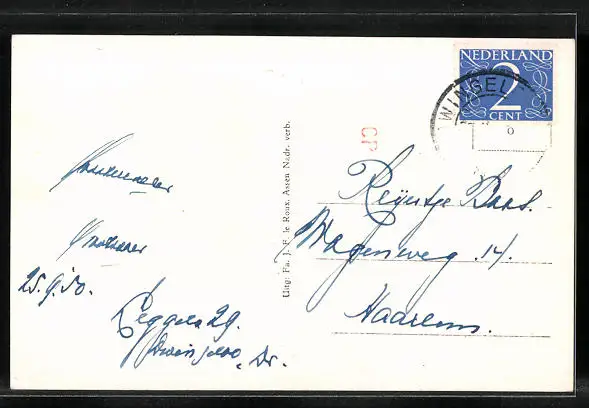 NEDERLAND
2
CENT
WINSEL
CP
Uitg: Fa. J. F. le Roux, Assen Nadr. verb.
25.9.50.
Eggen 29.
Dwingeloo, Dr.
Reijntje Baas.
Wagenweg 14.
Haarlem.